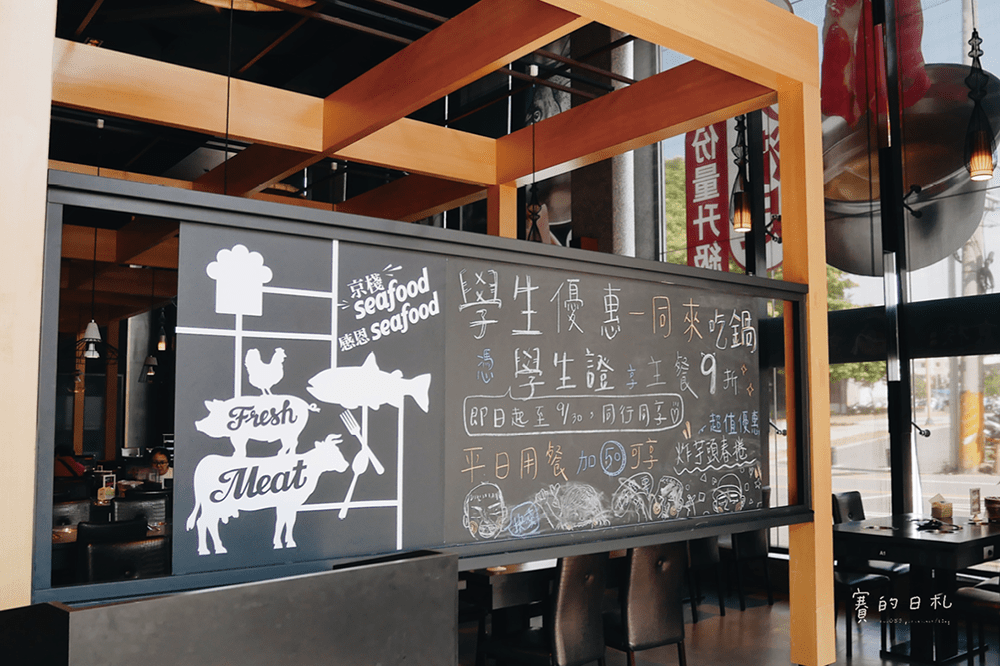 份量升級
京棧
seafood
感恩 seafood
Fresh
Meat
學生優惠一同來吃鍋
憑學生證享主餐9折
即日起至9/30，同行同享♡
超值優惠
平日用餐加50可享
炸芋頭春捲
賽的日札